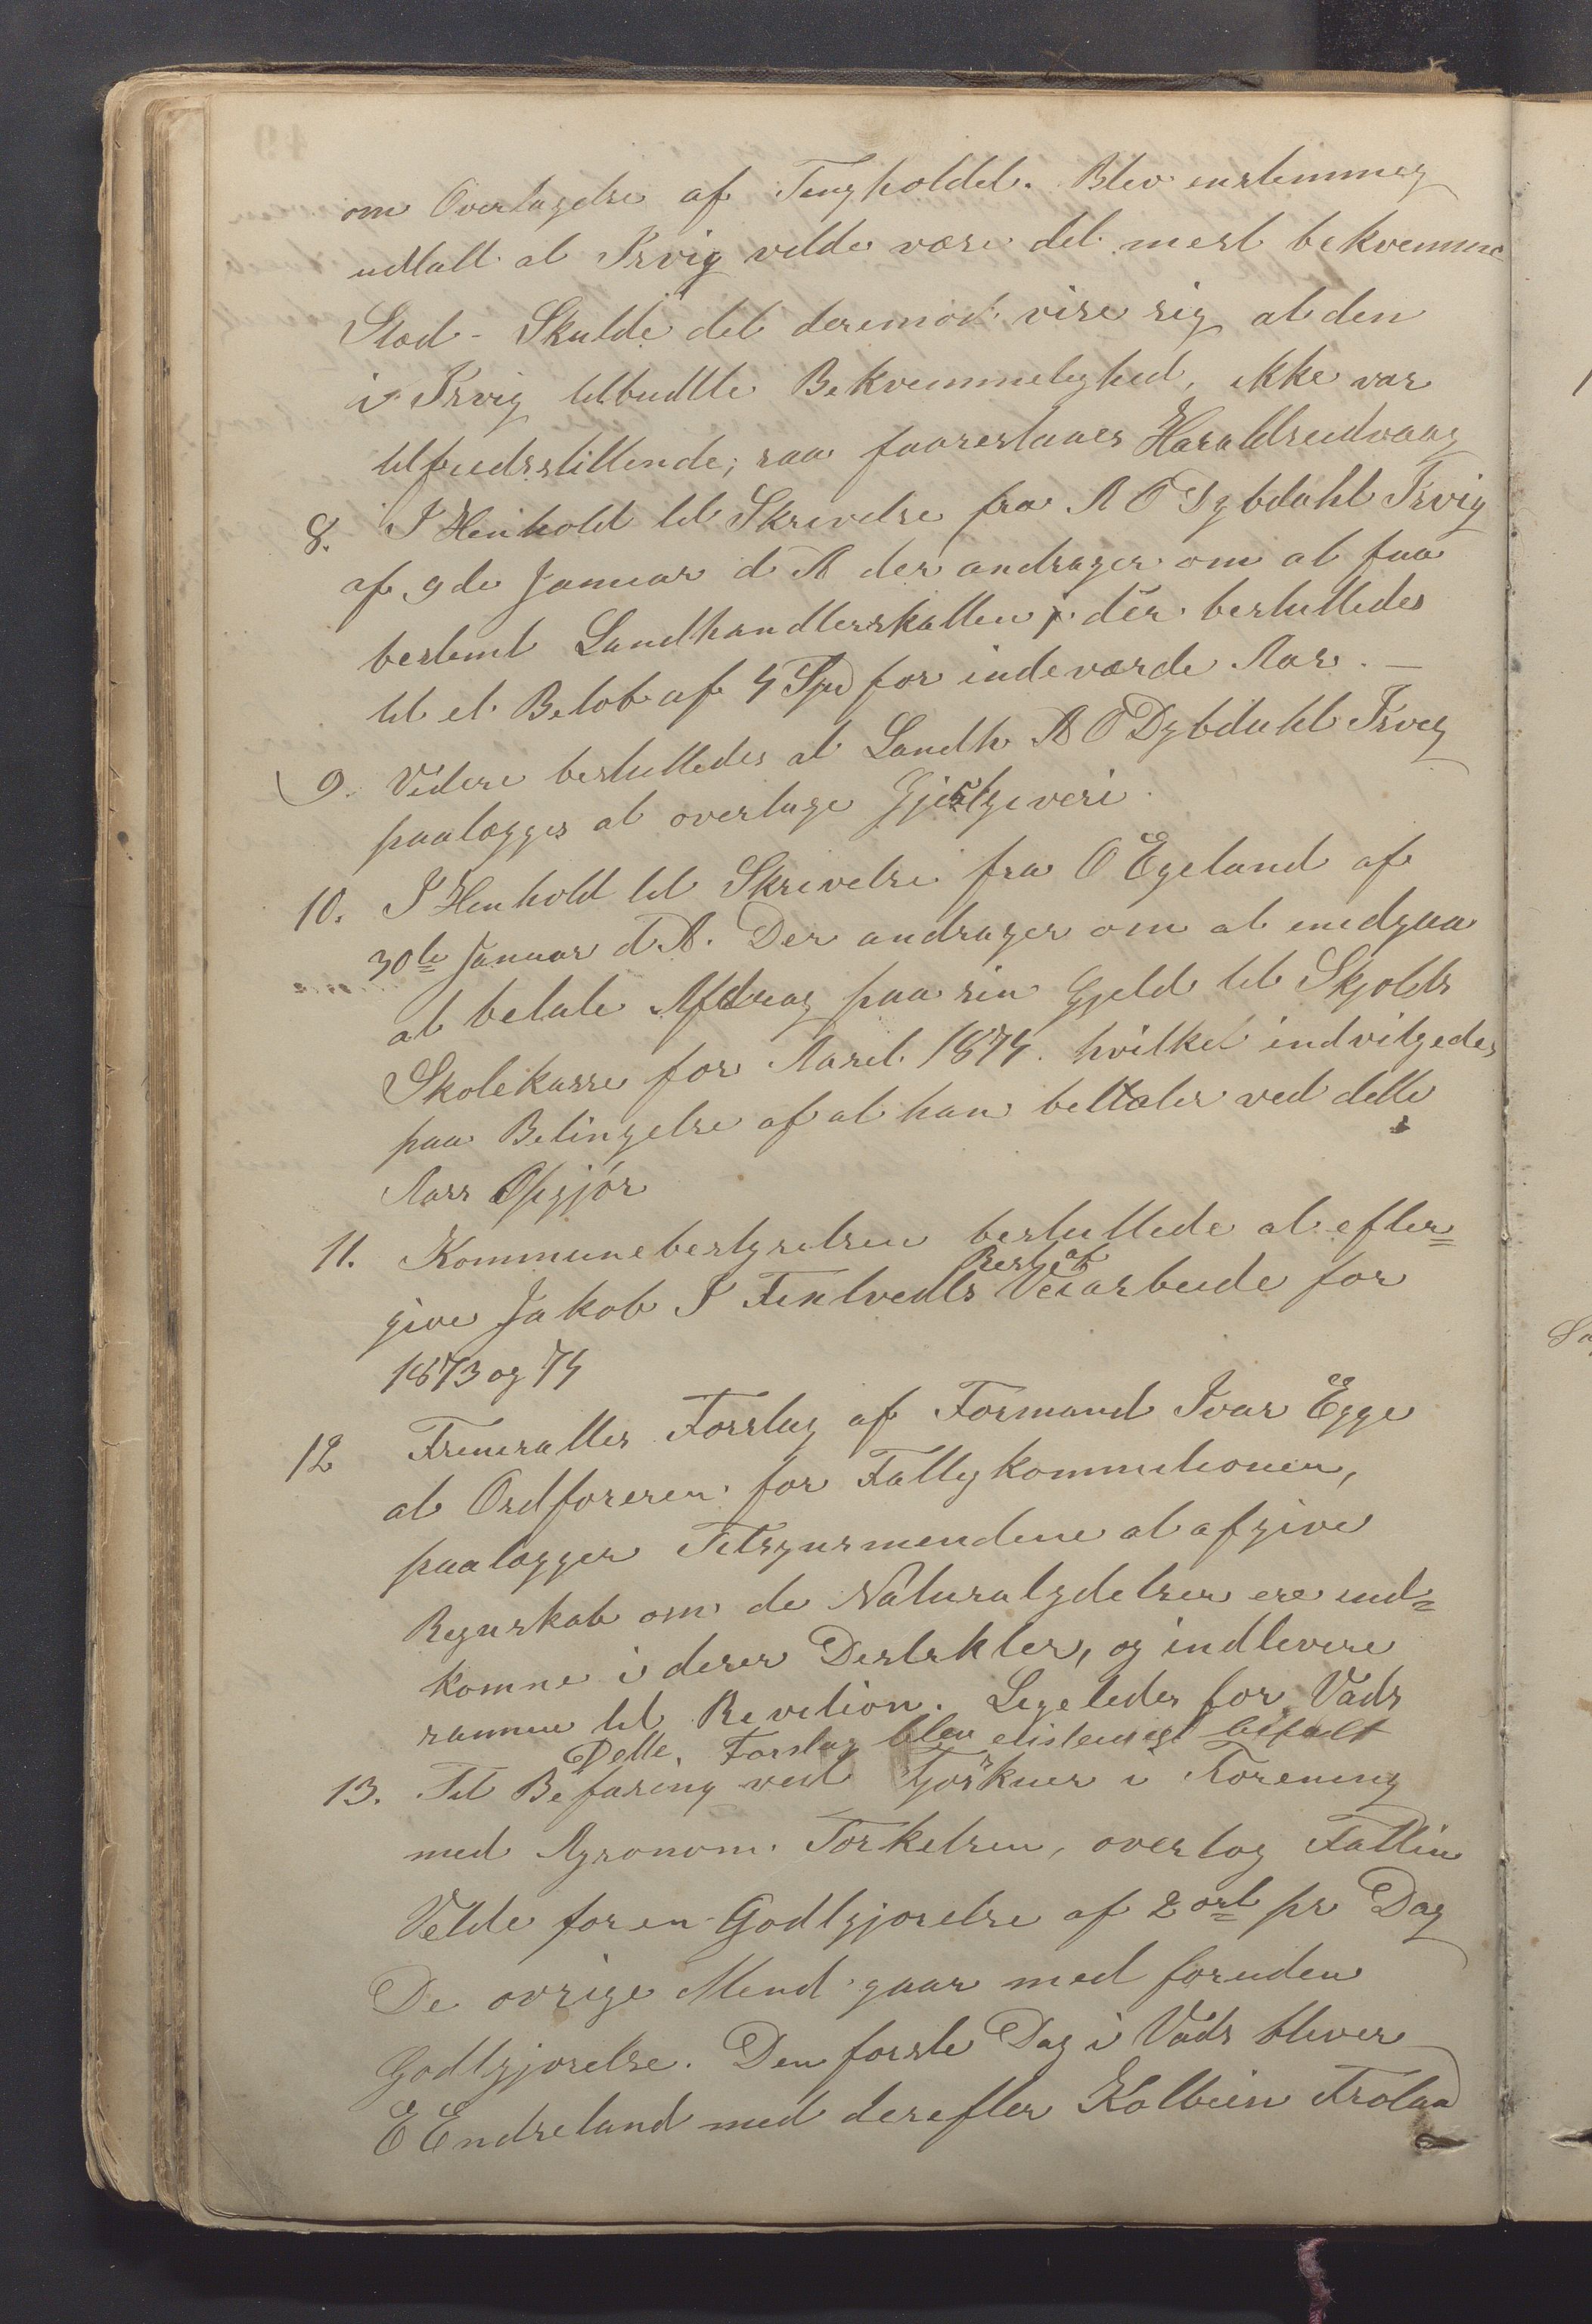 om Overtagelse af Tingholdet. Blev enstemmeg
udtalt at Isvig vilde være det mest bekvemme
Stad - Skulde det derimod vise sig at den
i Isvig tilbudtte Bekvemmelighed, ikke var
tilfredsstillende; saa faarestaaes Haraldseidvaag
8. I Henhold til Skrivelse fra A O Dybdahl Isvig
af 9de Januar d A der andrager om at faa
bestemt Landhandlerskatten, der besluttedes
til et Beløb af 4 Spd for indeværde Aar. —
9. Videre besluttedes at Landh A O Dybdahl Isveg
paalægges at overtage Gjestgiveri.
10. I Henhold til Skrivelse fra O Egeland af
30te Januar d. A. Der andrager om at undgaa
at betale Afdrag paa sin Gjeld til Skjolds
Skolekasse for Aaret 1874. hvilket indvilgedes
paa Betingelse af at han bettaler ved dette
Aars Opgjør
11. Kommunebestyrelsen besluttede at efter=
Rest af
give Jakob I Finlvedts Veiarbeide for
1873 og 74
12 Fremsattes Forslag af Formand Ivar Egge
at Ordføreren for Fattigkommitionen,
paalægger Tilsynsmendene at afgive
Regnskab om de Naturalydelser ere ind=
komne i deres Destrkter, og indlevere
samme til Revition. Ligeledes for Vads
Dette Forslag blev enstemigt bifalt
13. Til Befaring ved Tjørkner i Forening
med Agronom Torkelsen, overtog Fattin
Velde for en Godtgjørelse af 2 ort pr Dag
De øvrige Mend gaar med foruden
Godtgjørelse. Den første Dag i Vads bliver
E Endreland med derefter Kolbein Frolaa